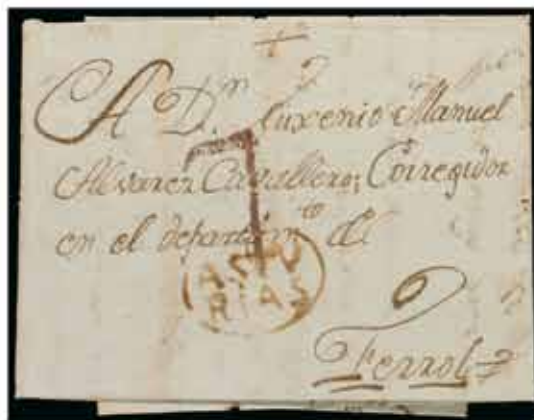 A D.ⁿ Euxenio Manuel
Alvarez Cavallero; Corregidor
en el departam.ᵗᵒ del
7
ASTU
RIAS
Ferrol